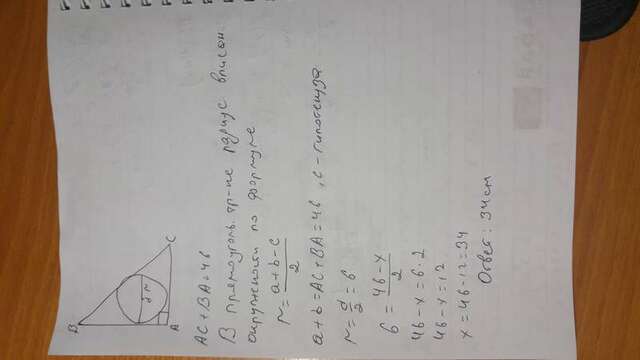 B
r
A
C
AC + BA = 46
В прямоугол. тр-ке радиус вписан.
окружности по формуле
r = \frac{a+b-c}{2}
a+b = AC+BA = 46, c - гипотенуза
r = \frac{d}{2} = 6
6 = \frac{46-x}{2}
46-x = 6·2
46-x = 12
x = 46-12 = 34
Ответ: 34 см